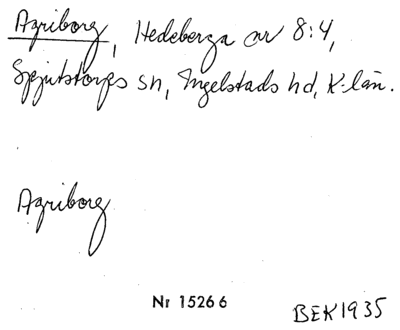 Agriborg, Hedeberga av 8:4,
Spjutstorps sn, Ingelstads hd, K-län.
Agriborg
Nr 15266
BEK1935